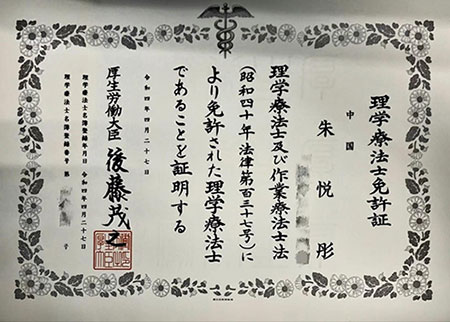 理学療法士免許証
中国
朱悦彤
理学療法士及び作業療法士法
（昭和四十年法律第百三十七号）に
より免許された理学療法士
であることを証明する
令和四年四月二十七日
厚生労働大臣 後藤茂之
理学療法士名簿登録年月日 令和四年四月二十七日
理学療法士名簿登録番号 第 号